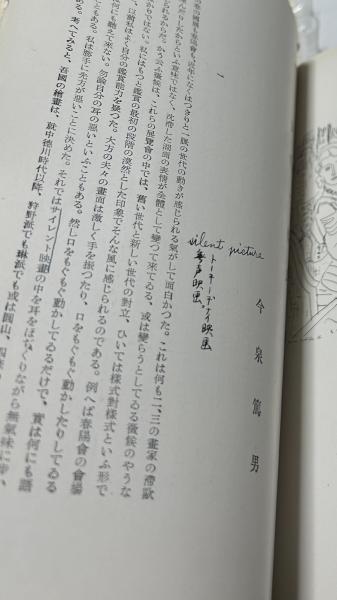 今泉篤男
silent picture
トーキーデナイ映画
無声映画。
一
の世代の動きが感じられる氣がして面白かつた。これは何も二、三の畫家の滯歐
ではなく、沈滯した混面の表情が全體として變つて來てゐる、或は變らうとしてゐる徴候のやうな
かう云ふ徴候は、これらの展覽會の中では、舊い世代と新しい世代の對立、ひいては樣式對樣式といふ形で
私にはもつと鑑賞の最初の段階の漠然とした印象でそんな風に感じられるのである。例へば春陽會の會場
以前私はよく自分の鑑賞能力を疑つた。大方の夫々の畫面は激しく手を振つたり、口をもぐもぐ動かしたりしてゐる
何にも聽えて來ない。勿論自分の耳の惡いといふこともある。然し口をもぐもぐ動かしてゐるだけで、實は何にも語
こともある。私は勝手に先方が惡いことに決めた。それではサイレント映畫の中を耳をほじくりながら無氣味に歩
ある。考へてみると、吾國の繪畫は、就中德川時代以降、狩野派でも琳派でも或は圓山、四條